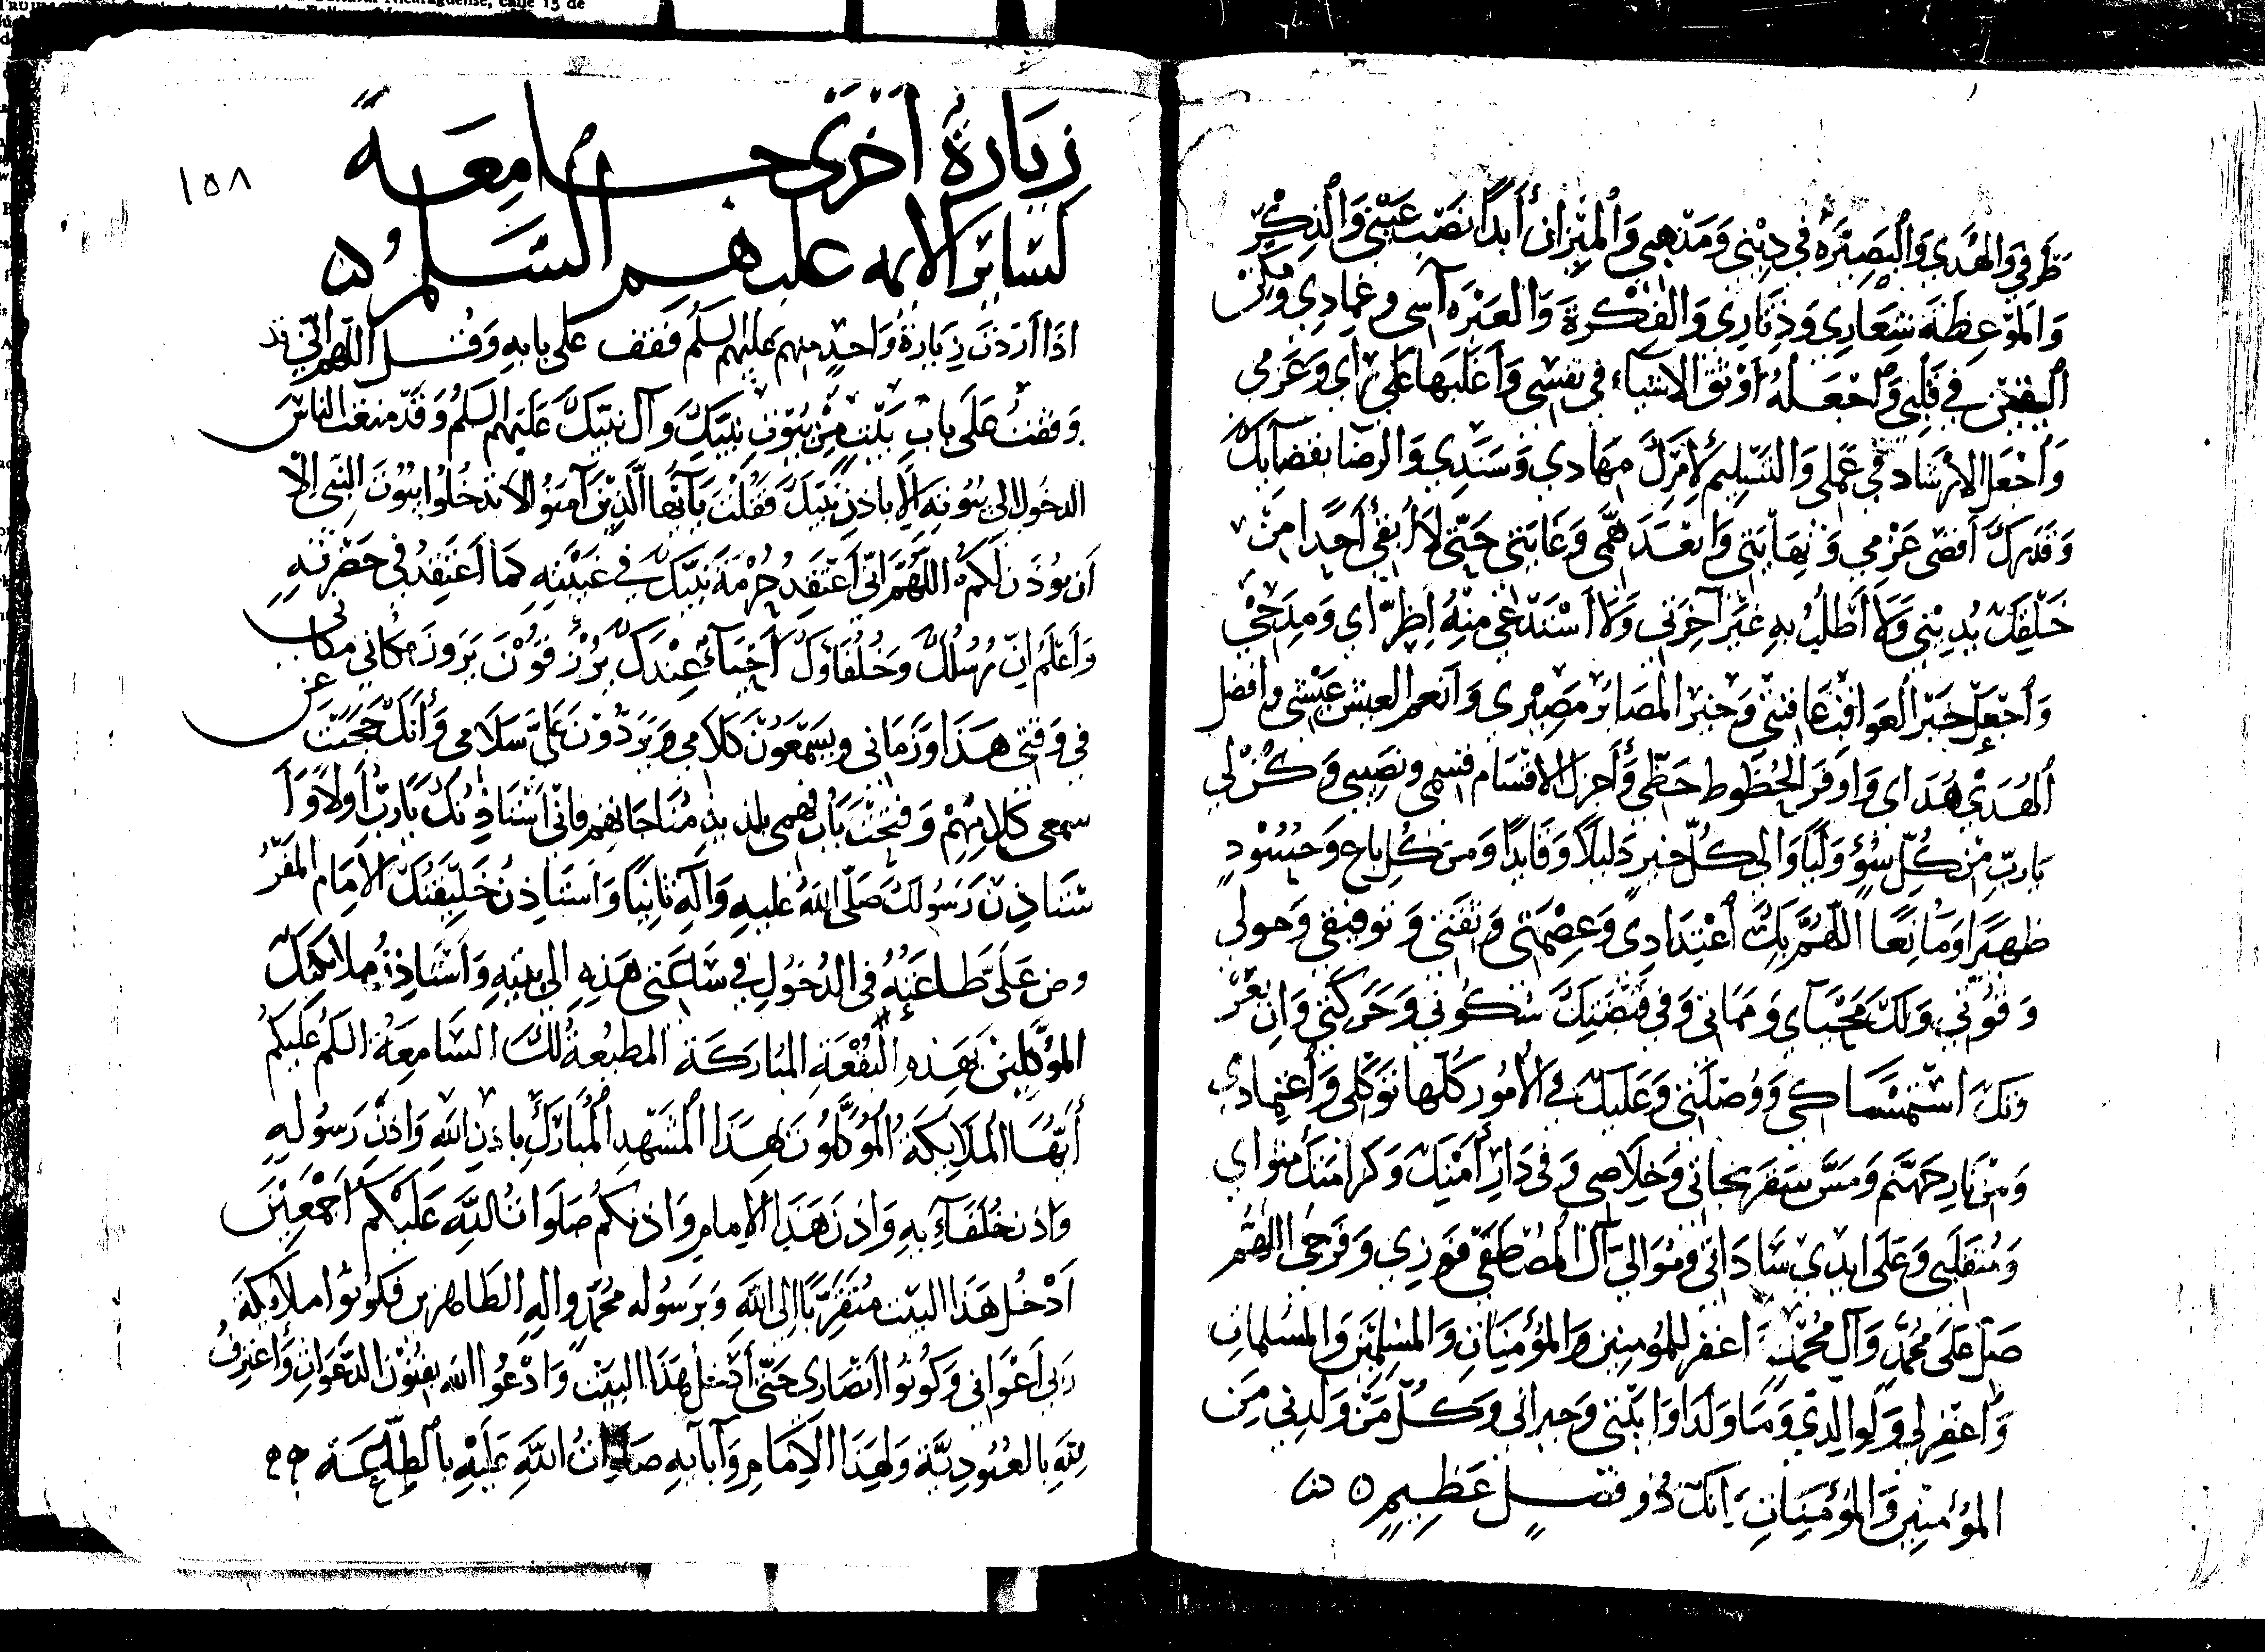 طرقي والهدي والبصيرة في ديني ومذهبي والميزان أبدا نصب عيني والذكر
والموعظة شعاري ودثاري والفكرة والعبرة آسي وعمادي ومكن
اليقين في قلبي واجعله أوثق الاشياء في نفسي وأغلبها على رأي وعزمي
واجعل الارشاد في عملي والتسليم لامرك مهادي وسندي والرضا بقضائك
وقدرك أقصى عزمي ونهايتي وابعد همي وغايتي حتى لا أتقي أحدا من
خلقك بديني ولا أطلب به غير آخرتي ولا أستدعي منه اطراي ومدحي
واجعل خير العواقب عاقبتي وخير المصائر مصيري وانعم العيش عيشي وافضل
الهدي هداي واوفر الحظوظ حظي وأجزل الاقسام قسمي ونصيبي وكن لي
يارب من كل سوء وليا والى كل خير دليلا وقايدا ومن كل باغ وحسود
ظهيرا ومانعا اللهم بك أعتدادي وعصمتي وثقتي وتوفيقي وحولي
وقوتي ولك محياي ومماتي وفي قبضتك سكوني وحركتي وان بعر
وتك استمساكي ووصلتي وعليك في الأمور كلها توكلي وأعتمادي
ومن نار جهنم ومس سقر نجاتي وخلاصي وفي دار أمنك وكرامتك مثواي
ومنقلبي وعلى ايدي ساداتي وموالي آل المصطفى فوزي وفرجي اللهم
صل على محمد وآل محمد اغفر للمؤمنين والمؤمنات والمسلمين والمسلمات
واغفر لي ولوالدي وما ولدا وابلتني وجيراني وكل من ولدني من
المؤمنين والمؤمنات انك ذو فضل عظيم
١٥٨
زيارة أخرى جامعة
لسائر الائمه عليهم السلم
اذا أردت زيارة واحد منهم عليهم السلم فقف على بابه وقل اللهم اني قد
وقفت على باب بيت من بيوت نبيك وآل نبيك عليهم السلم وقد منعت الناس
الدخول الى بيوته إلا باذن نبيك فقلت يا أيها الذين آمنوا لا تدخلوا بيوت النبي إلا
أن يؤذن لكم اللهم اني أعتقد حرمة نبيك في غيبته كما أعتقد في حضرته
وأعلم ان رسلك وخلفاؤك أحياء عندك يرزقون يرون مكاني مكاني
في وقتي هذا وزماني ويسمعون كلامي ويردون على سلامي وأنك حجبت عن
سمعي كلامهم وفتحت باب فهمي بلذيذ مناجاتهم فاني استاذنك يارب أولا وأ
ستاذن رسولك صلى الله عليه وآله ثانيا واستاذن خليفتك الامام المفر
وض على طاعته في الدخول في ساعتي هذه الى بيته واستاذن ملائكتك
المؤكلين بهذه البقعة المباركة المطيعة لك السامعة السلم عليكم
أيها الملائكة المؤكلون بهذا المشهد المبارك باذن الله واذن رسوله
واذن خلفائه واذن هذا الامام واذنكم صلوات الله عليكم اجمعين
ادخل هذا البيت متقربا الى الله وبرسوله محمد واله الطاهرين فكونوا ملائكة
ربي أعواني وكونوا انصاري حتى أدخل هذا البيت وادعو الله بفنون الدعوات وأعترف
لله بالعبودية ولهذا الامام وآبائه صلوات الله عليه بالطاعة